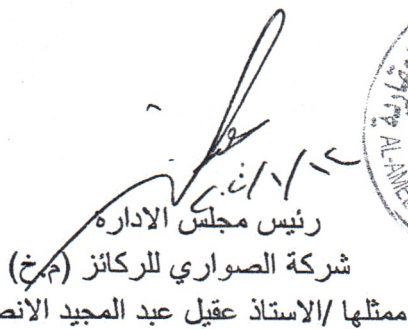 رئيس مجلس الاداره
شركة الصواري للركائز (م.خ)
ممثلها /الاستاذ عقيل عبد المجيد الانص